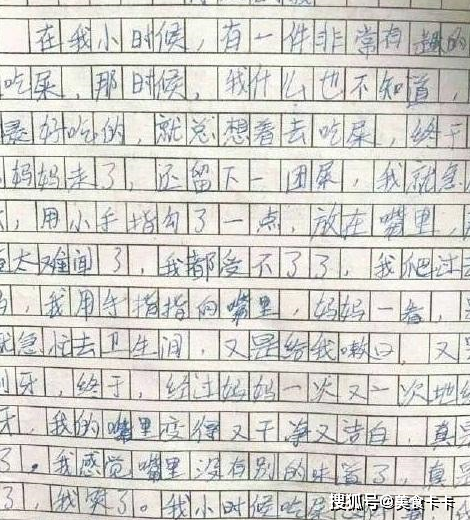 在我小时候，有一件非常有趣的
吃屎，那时候，我什么也不知道，
最好吃的，就总想着去吃屎，终于
妈妈走了，还留下一团屎，我就急
，用小手指勾了一点，放在嘴里，
太难闻了，我都受不了了，我爬过
，我用手指指向嘴里，妈妈一看，
就急忙去卫生间，又是给我嗽口，又
刷牙，终于，经过妈妈一次又一次地
牙，我的嘴里变得又干净又洁白，真是
了。我感觉嘴里没有别的味道了，真是
了，我笑了。我小时候吃屎
搜狐号@美食卡卡